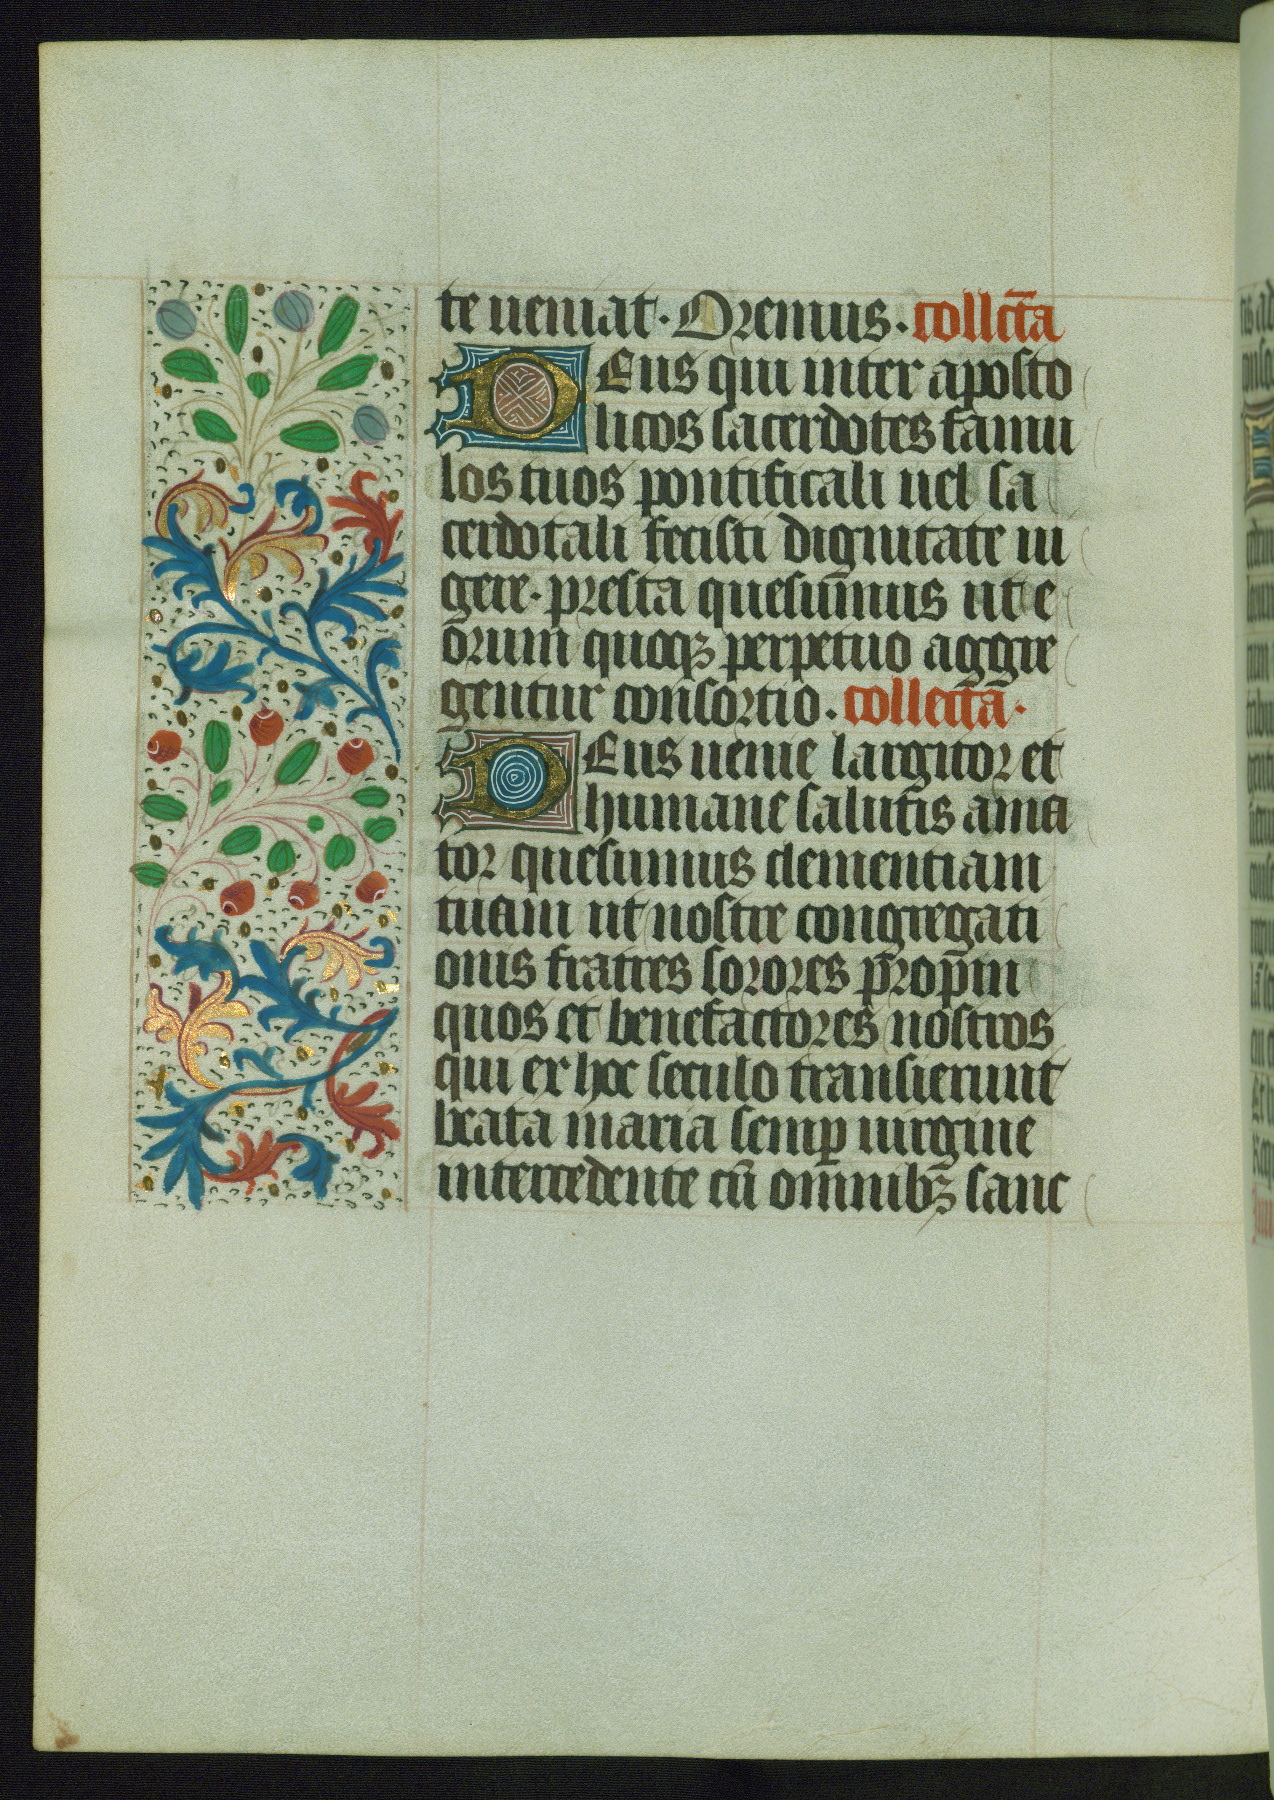 te ueniat. Oremus. collecta̅
Deus qui inter aposto
licos sacerdotes famu
los tuos pontificali uel sa
cerdotali fecisti dignitate ui
gere. presta quesum̅us ut e
orum quoqꝫ perpetuo aggre
gentur consortio. collecta̅.
Deus uenie largitor et
humane salutis ama
tor quesumus clementiam
tuam ut nostre congregati
onis fratres sorores p̅rop̅in
quos et benefactores nostros
qui ex hoc seculo transierunt
beata maria semꝑ uirgine
intercedente cu̅ omnibꝫ sanc